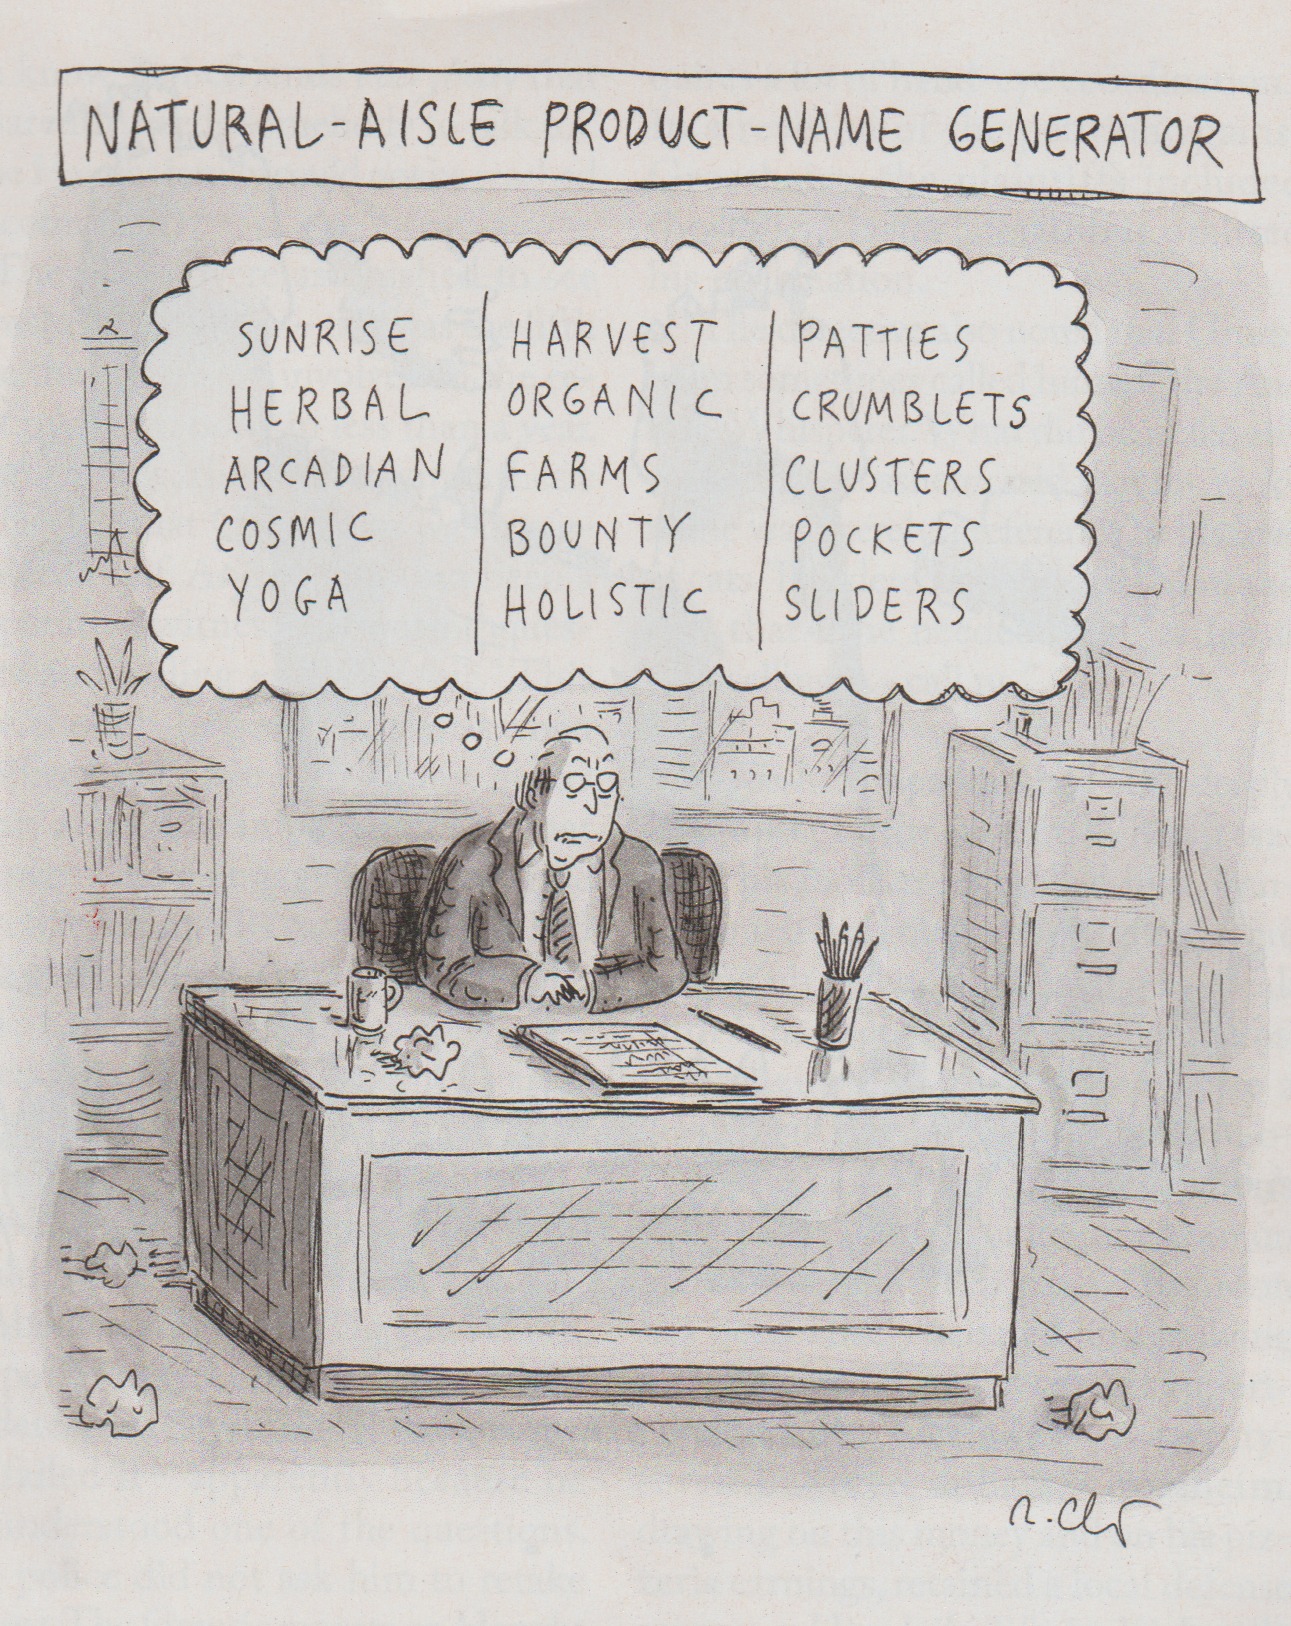 NATURAL-AISLE PRODUCT-NAME GENERATOR
SUNRISE HARVEST PATTIES
HERBAL ORGANIC CRUMBLETS
ARCADIAN FARMS CLUSTERS
COSMIC BOUNTY POCKETS
YOGA HOLISTIC SLIDERS